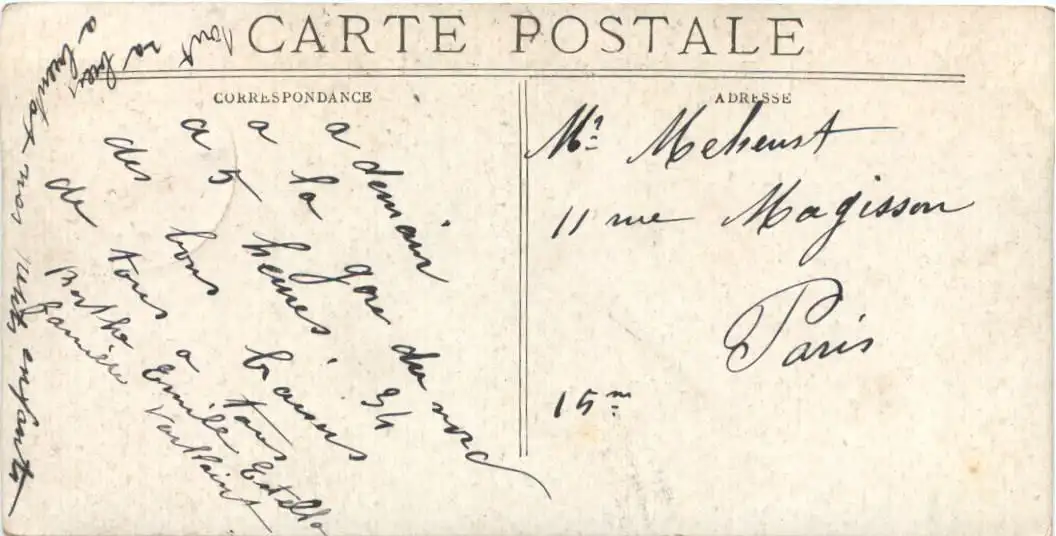 CARTE POSTALE
CORRESPONDANCE
ADRESSE
a demain
a la gare du nord
a 5 heures 34
des bons baisers
de tous a tous
Emile Estelle
Marthe
tout
a bientot nos petits enfants
Mr Meheust
11 rue Magisson
Paris
15m